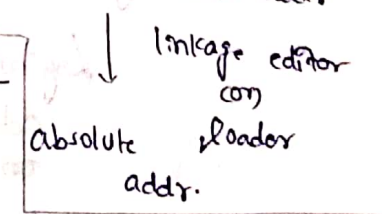 linkage editor
(or)
absolute loader
addr.